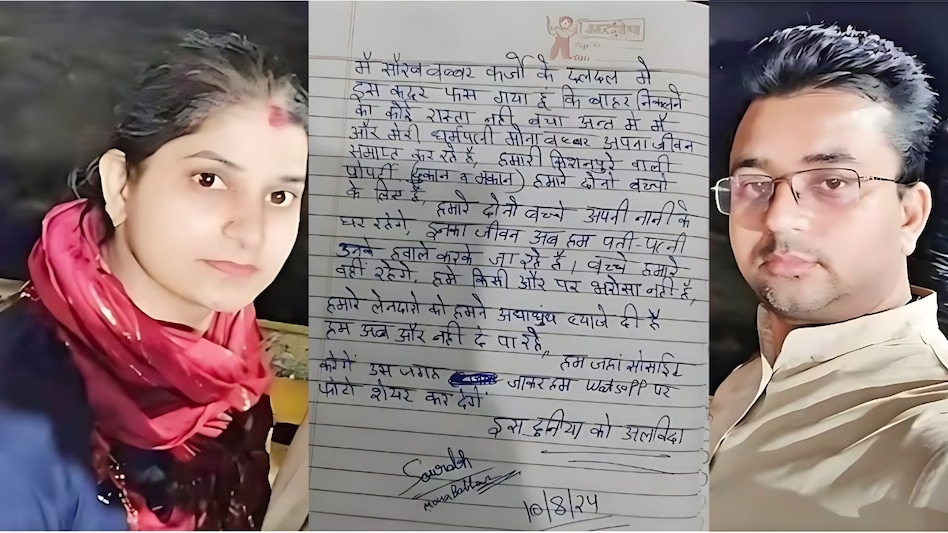 प्रदीप
Page No.
Date
मै सौरव बब्बर कर्जो के दलदल मे
इस कदर फस गया हू कि बाहर निकलने
का कोई रास्ता नही बचा अन्त मे मै
और मेरी धर्मपत्नी मोना बब्बर अपना जीवन
समाप्त कर रहे है, हमारी किशनपुरे वाली
प्रोपर्टी (दुकान व मकान) हमारे दोनो बच्चो
के लिए है, हमारे दोनो बच्चे अपनी नानी के
घर रहेगे, इनका जीवन अब हम पती-पत्नी
उनके हवाले करके जा रहे है। बच्चे हमारे
वही रहेगे, हमे किसी और पर भरोसा नही है,
हमारे लेनदारो को हमने अंधाधुंध ब्याजे दी है
हम अब और नही दे पा रहे,, हम जहां सोसाईट
करेगें उस जगह जाकर हम watsaff पर
फोटो शेयर कर देगें
इस दुनिया को अलविदा
Sourabh
Mona Babbar
10/8/24